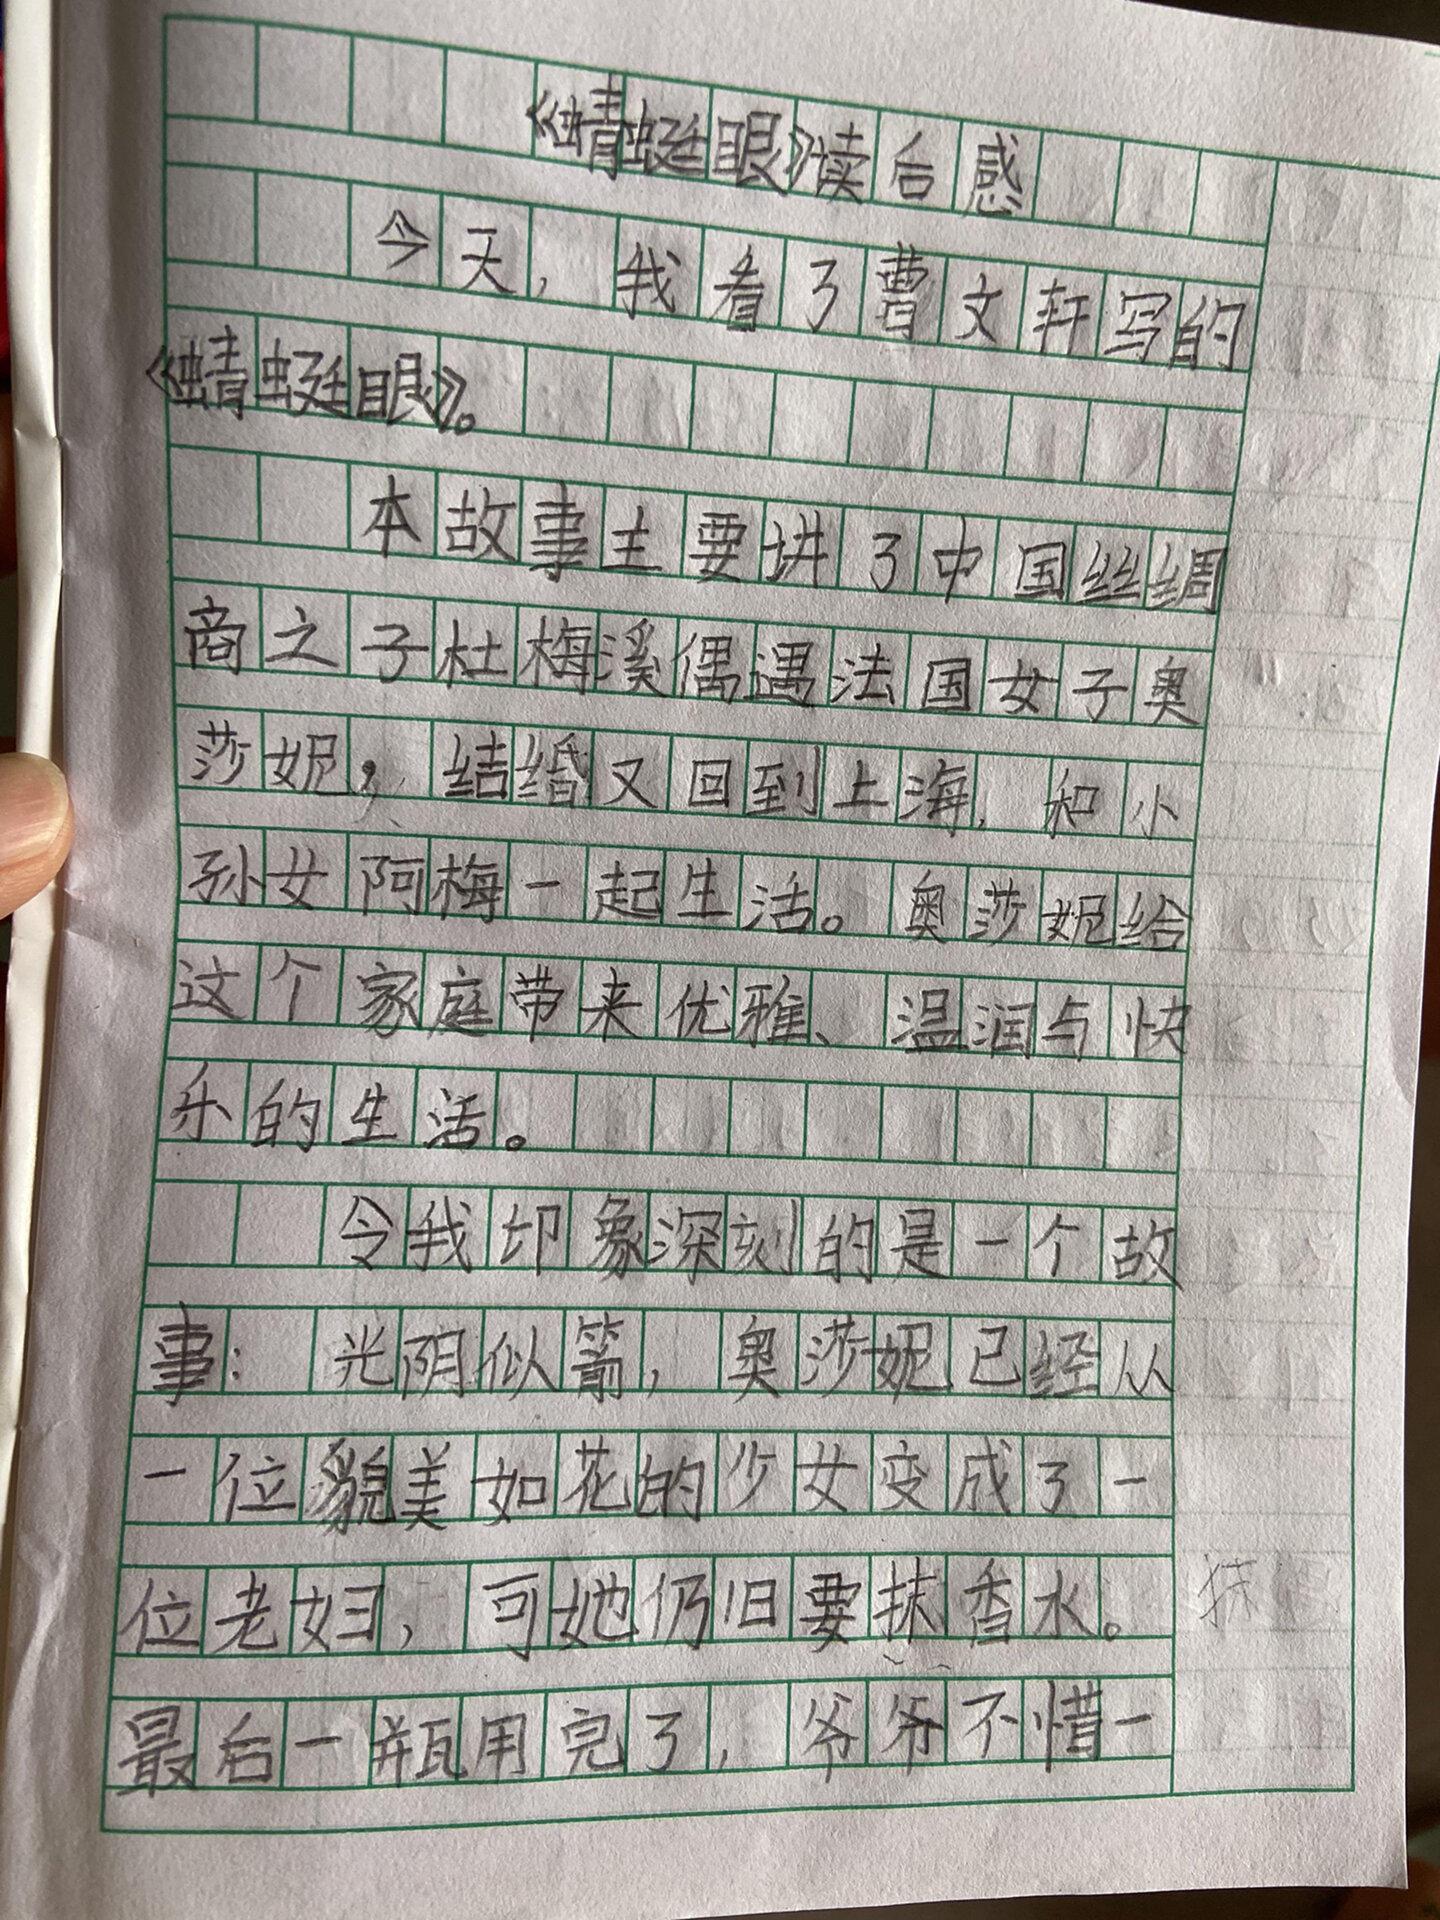 《蜻蜓眼》读后感
今天，我看了曹文轩写的
《蜻蜓眼》。
本故事主要讲了中国丝绸
商之子杜梅溪偶遇法国女子奥
莎妮，结婚又回到上海，和小
孙女阿梅一起生活。奥莎妮给
这个家庭带来优雅、温润与快
乐的生活。
令我印象深刻的是一个故
事：光阴似箭，奥莎妮已经从
一位貌美如花的少女变成了一
位老妇，可她仍旧要抹香水。
抹
最后一瓶用完了，爷爷不惜一